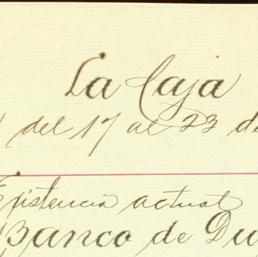 La Caja
del 17 al 23 de
Existencia actual
Banco de Du